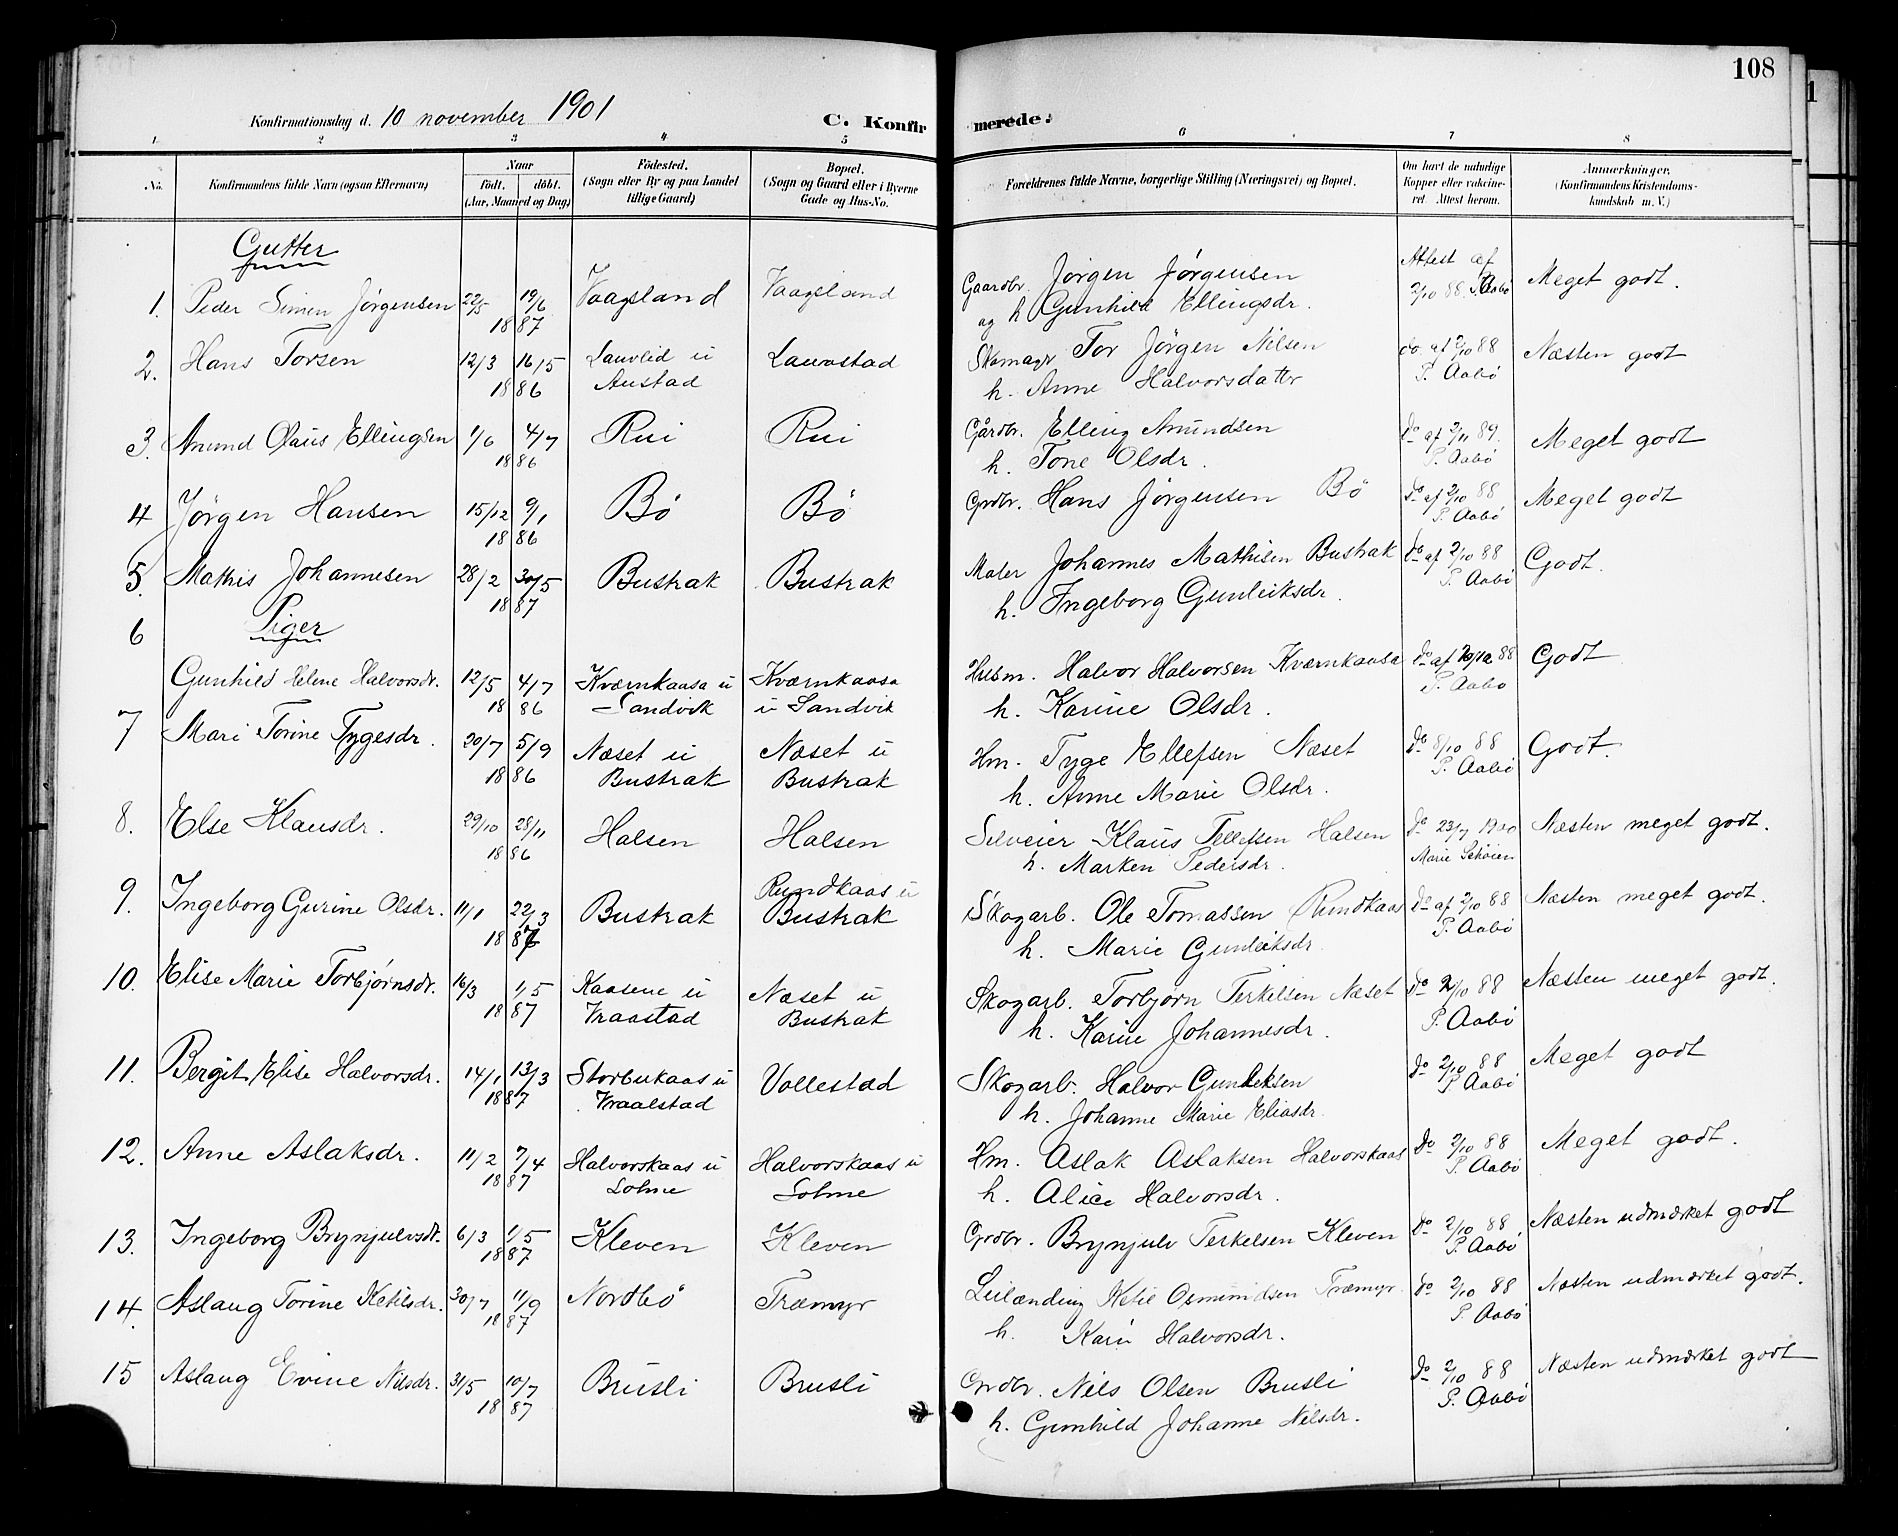 108
Konfirmationsdag d. 10 november 1901
C. Konfirmerede.
1 2 3 4 5 6 7 8
No.
Konfirmandens fulde Navn (ogsaa Efternavn)
Naar
født. døbt.
(Aar, Maaned og Dag)
Fødested.
(Sogn eller By og paa Landet
tillige Gaard)
Bopæl.
(Sogn og Gaard eller i Byerne
Gade og Hus-No.
Forældrenes fulde Navne, borgerlige Stilling (Næringsvei) og Bopæl.
Om havt de naturlige
Kopper eller vakcine-
ret. Attest herom.
Anmerkninger.
(Konfirmandens Kristendoms-
kundskab m. V.)
Gutter
1. Peder Simen Jørgensen 22/5 19/6 1887 Vaagsland Vaagsland Gaardbr. Jørgen Jørgensen Attest af 2/10 88. P. Aabø Meget godt.
og h Gunhild Ellingsdr.
2. Hans Torsen 12/3 16/5 1886 Lauvlid u Austad Lauvstad Skomagr Tor Jörgen Nilsen do. af 2/10 88 P. Aabö Næsten godt
h. Anne Halvorsdatter
3. Anund Olaus Ellingsen 1/6 4/7 1886 Rui Rui Gårdbr. Elling Anundsen do af 2/11 89. P. Aabø Meget godt
h. Tone Olsdr.
4 Jørgen Hansen 15/12 9/1 1886 Bö Bö Grdbr. Hans Jørgensen Bö do af 2/10 88 P. Aabö Meget godt
5. Mathis Johannesen 28/2 30/5 1887 Bustrak Bustrak Maler Johannes Mathisen Bustrak do af 2/10 88 P. Aabø Godt.
h. Ingeborg Gunleiksdr.
Piger
6 Gunhild Helene Halvorsdr. 12/5 4/7 1886 Kværnkaasa u Sandvik Kværnkaasa u Sandvik Husm. Halvor Halvorsen Kværnkaasa do af 20/12 88 P. Aabø Godt
h. Karine Olsdr.
7 Mari Torine Tygesdr. 20/7 5/9 1886 Næset u Bustrak Næset u Bustrak Hm. Tyge Ellefsen Næset do 8/10 88 P. Aabö Godt.
h. Anne Marie Olsdr.
8. Else Klausdr. 29/10 28/11 1886 Halsen Halsen Selveier Klaus Tellefsen Halsen do 23/7 1900 Marie Schöien Næsten meget godt.
h. Marken Pedersdr.
9. Ingeborg Gurine Olsdr. 11/1 22/3 Bustrak Rundkaas u Bustrak Skogarb. Ole Tomassen Rundkaas do af 2/10 88 P. Aabø Næsten meget godt.
h. Marie Gunleiksdr.
10. Elise Marie Torbjørnsdr. 16/3 1/5 1887 Kaasene u Vraastad Næset u Bustrak Skogarb. Torbjørn Terkelsen Næset do 2/10 88 P. Aabö Næsten meget godt.
h. Karine Johannesdr.
11. Bergit Elise Halvorsdr. 14/1 13/3 1887 Vraalstad Vollestad Skogarb. Halvor Gunleksen do 2/10 88 P. Aabø Meget godt
h. Johanne Marie Eliasdr.
12. Anne Aslaksdr. 11/2 7/4 1887 Halvorskaas u Solme Halvorskaas u Solme Hm. Aslak Aslaksen Halvorskaas do 2/10 88 P. Aabø Meget godt.
h. Alice Halvorsdr.
13. Ingeborg Brynjulvsdr. 6/3 1/5 1887 Kleven Kleven Grdbr. Brynjulv Terkelsen Kleven do 2/10 88 P. Aabø Næsten udmærket godt
14. Aslaug Torine Ketilsdr. 30/7 11/9 1887 Nordbö Træmyr Leilænding Ketil Osmundsen Træmyr. do 2/10 88 P. Aabø Næsten udmærket godt.
h. Kari Halvorsdr.
15 Aslaug Evine Nilsdr. 31/5 10/7 1887 Brusli Brusli Grdbr. Nils Olsen Brusli do 2/10 88 P. Aabø Næsten udmærket godt
h. Gunhild Johanne Nilsdr.